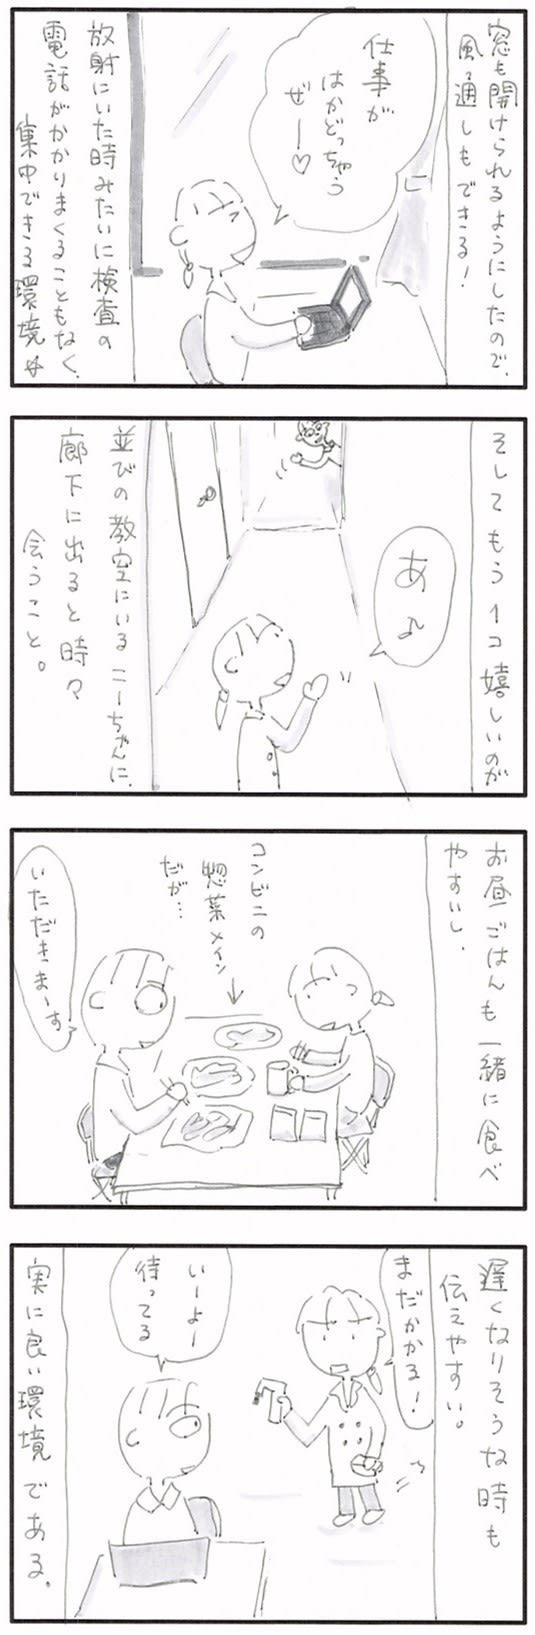 窓も開けられるようにしたので、
風通しもできる!
仕事が
はかどっちゃう
ぜー♡
放射にいた時みたいに検査の
電話がかかりまくることもなく、
集中できる環境☆
そしてもう1コ嬉しいのが
あ♪
並びの教室にいるニーちゃんに、
廊下に出ると時々
会うこと。
お昼ごはんも一緒に食べ
やすいし、
コンビニの
惣菜メイン
だが…
いただきまーす
遅くなりそうな時も
伝えやすい。
まだかかる!
いーよー
待ってる
実に良い環境である。